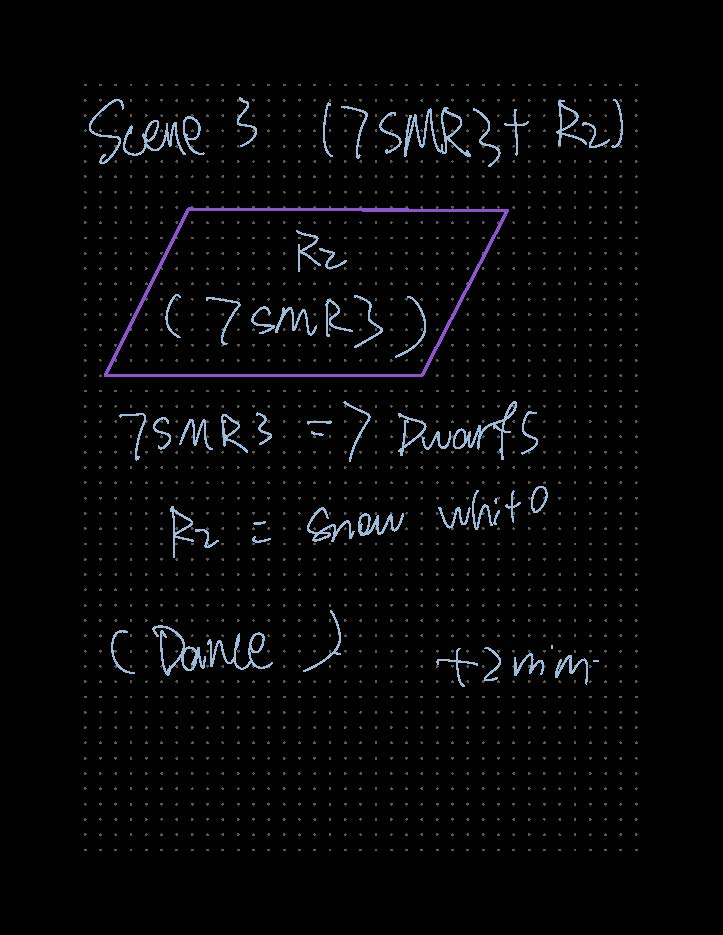 Scene 3 (7SMR3 + R2)
R2
(7SMR3)
7SMR3 = 7 Dwarfs
R2 = Snow White
(Dance) +2min